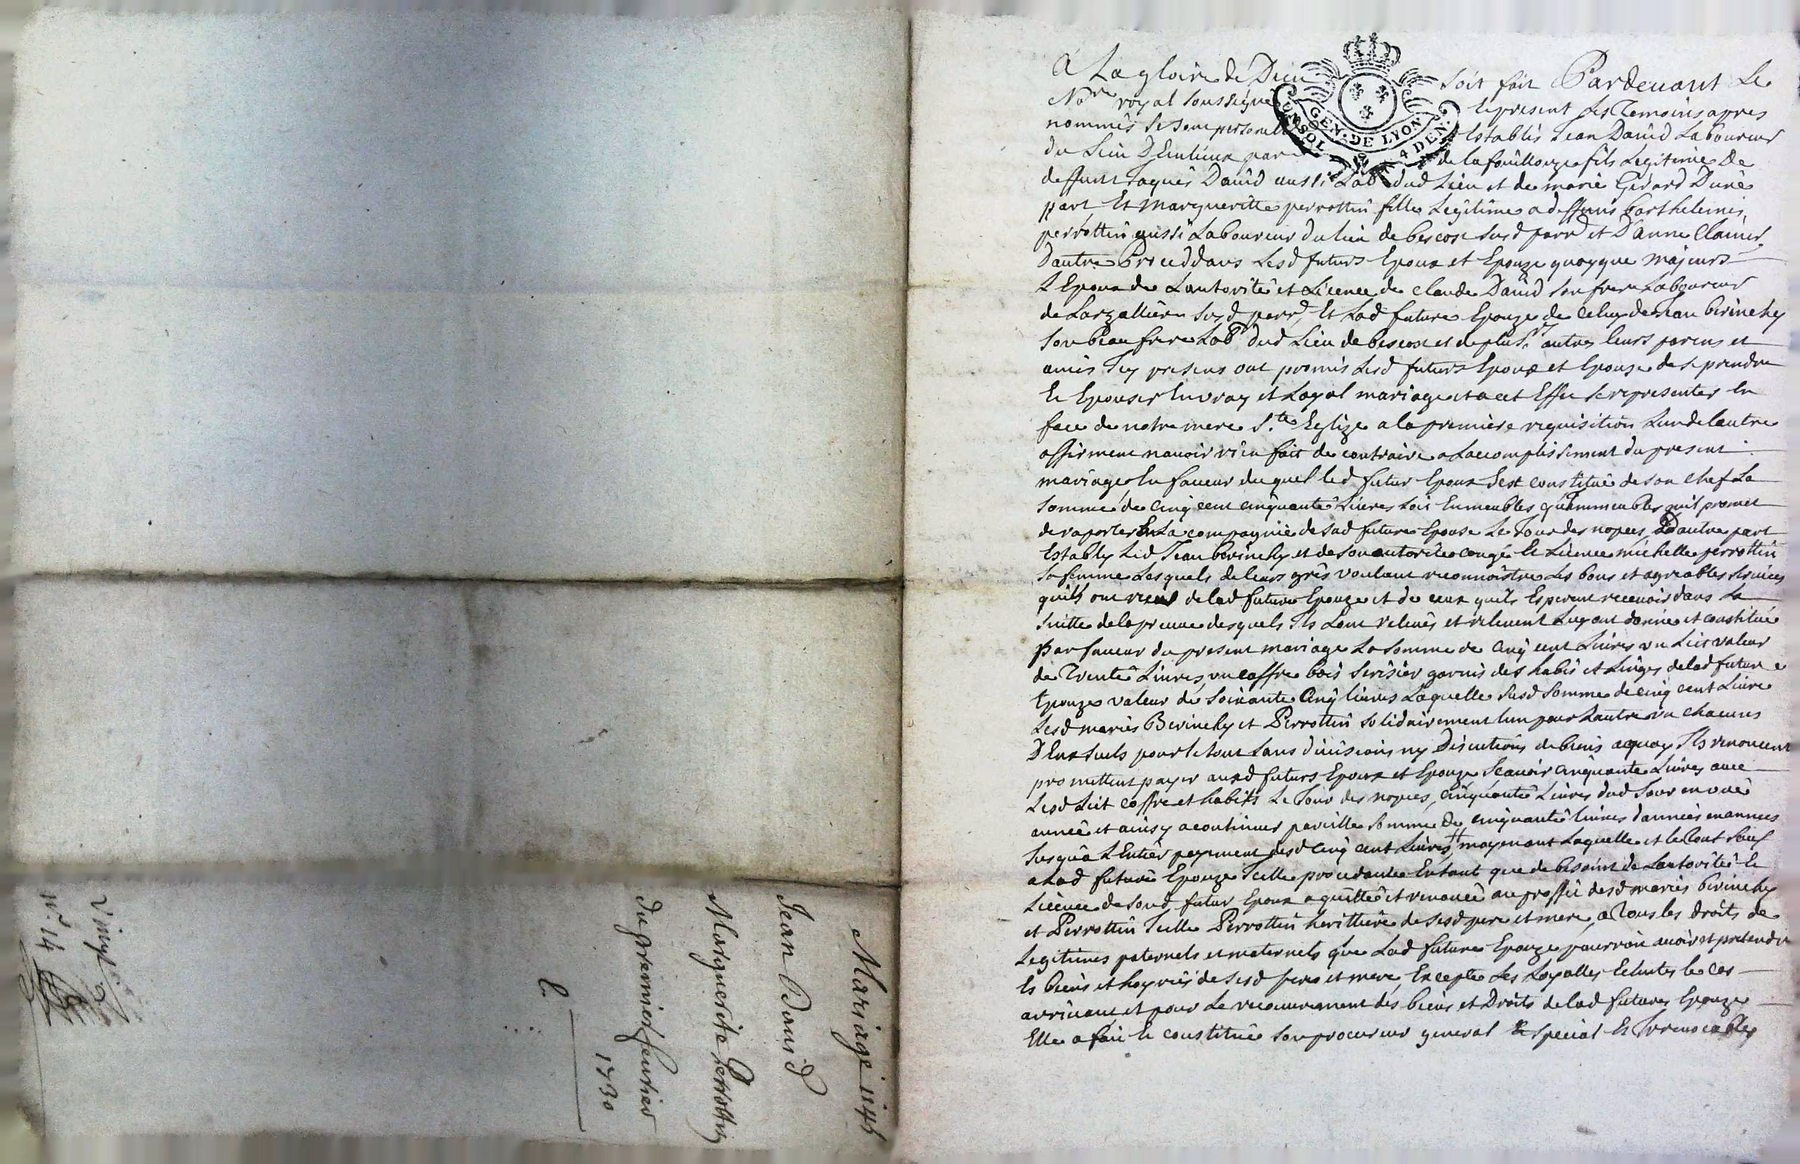 Mariage entre
Jean David
Marguerite Perrottin
du premier feurier
1730
Vingt
nº 14
GEN · DE LYON
4 DEN ·
A La gloire de Dieu soit fait Pardeuant Le
Nore royal soussigné et present Les Temoins apres
nommés se sont personnell establis Jean Dauid Laboureur
du Lieu par de la foüillouze fils Legitime De
deffunt Jaques Dauid aussi Labr dud Lieu et de marie Gérard Dune
part Et Margueritte perrottin fille Legitime a deffunt barthelemis
perrottin aussi Laboureur du lieu de bescos susd parr et Danne
Dautre Proceddans Lesd futurs Epoux et Epouze quoyque majeurs
L'Epoux de Lautorité et Licence de Claude Dauid son frere Laboureur
de susd parr, Et Lad future Epouze de celuy de Jean
son beau frere Labr dud Lieu de et de plusrs autres leurs parens et
amis Icy presens ont promis Lesd futurs Epoux et Epouze de se prendre
Et Epouser En vray et Loyal mariage et a cet Effet se representer En
face de notre mere Ste Eglize a la premiere requisition Lun de Lautre
affirmant nauoir rien fait de contraire a Laccomplissement du present
mariage En faueur du quel led futur Epoux s'est constitué de son chef La
somme de cinq cent cinquante Liures soit En meubles qu'immeubles quil promet
de raporter En La compagnie de sad future Epouse Le Jour des nopces, Dautre part
Establis Led Jean et de son autorité congé Et Licence michelle perrottin
sa femme Lesquels de leurs grés voulant reconnoistre Les bons et agreables seruices
quils ont receus de lad future Epouze et de ceux quils Esperent receuoir dans La
suitte de la preuue desquels Ils Lont releués et releuent Luy ont donné et constitué
Par faueur du present mariage La somme de cinq cent Liures un Lict valeur
de Trente Liures, un coffre bois serisier garnis des habis et Linges de lad future
Epouze valeur de soixante cinq liures Laquelle susd somme de cinq cent Liure
Lesd mariés et Perrottin solidairement Lun pour Lautre un chacuns
D'Eux seuls pour le tout sans diuisions ny Discutions de biens a quoy Ils renoncent
promettent payer auxd futurs Epoux et Epouze Scauoir cinquante Liures auec
Lesd Lict coffre et habits Le Jour des nopces, cinquante Liures dud Jour en une
année et ainsy a continuer pareille somme De cinquante liures d'années en années
Jusqu'a L'Entier payement desd cinq cent Liures moyenant Laquelle et le tout
a Lad future Epouze Icelle procedante Entant que de besoins de Lautorité Et
Licence de soud futur Epoux a quitté et renoncé au proffit desd mariés
et Perrottin Icelle Perrottin herittiere de sesd pere et mere, a Tous les droits de
Legitimes paternels et maternels que Lad future Epouze pourroit auoir et pretendre
Es biens et hoyries de sesd pere et mere Excepté Les Loyalles Echutes le cas
arriuant et pour Le recouurement des biens et Droits de lad future Epouze
Elle a fait Et constitué son procureur general Et special Et Irreuocable